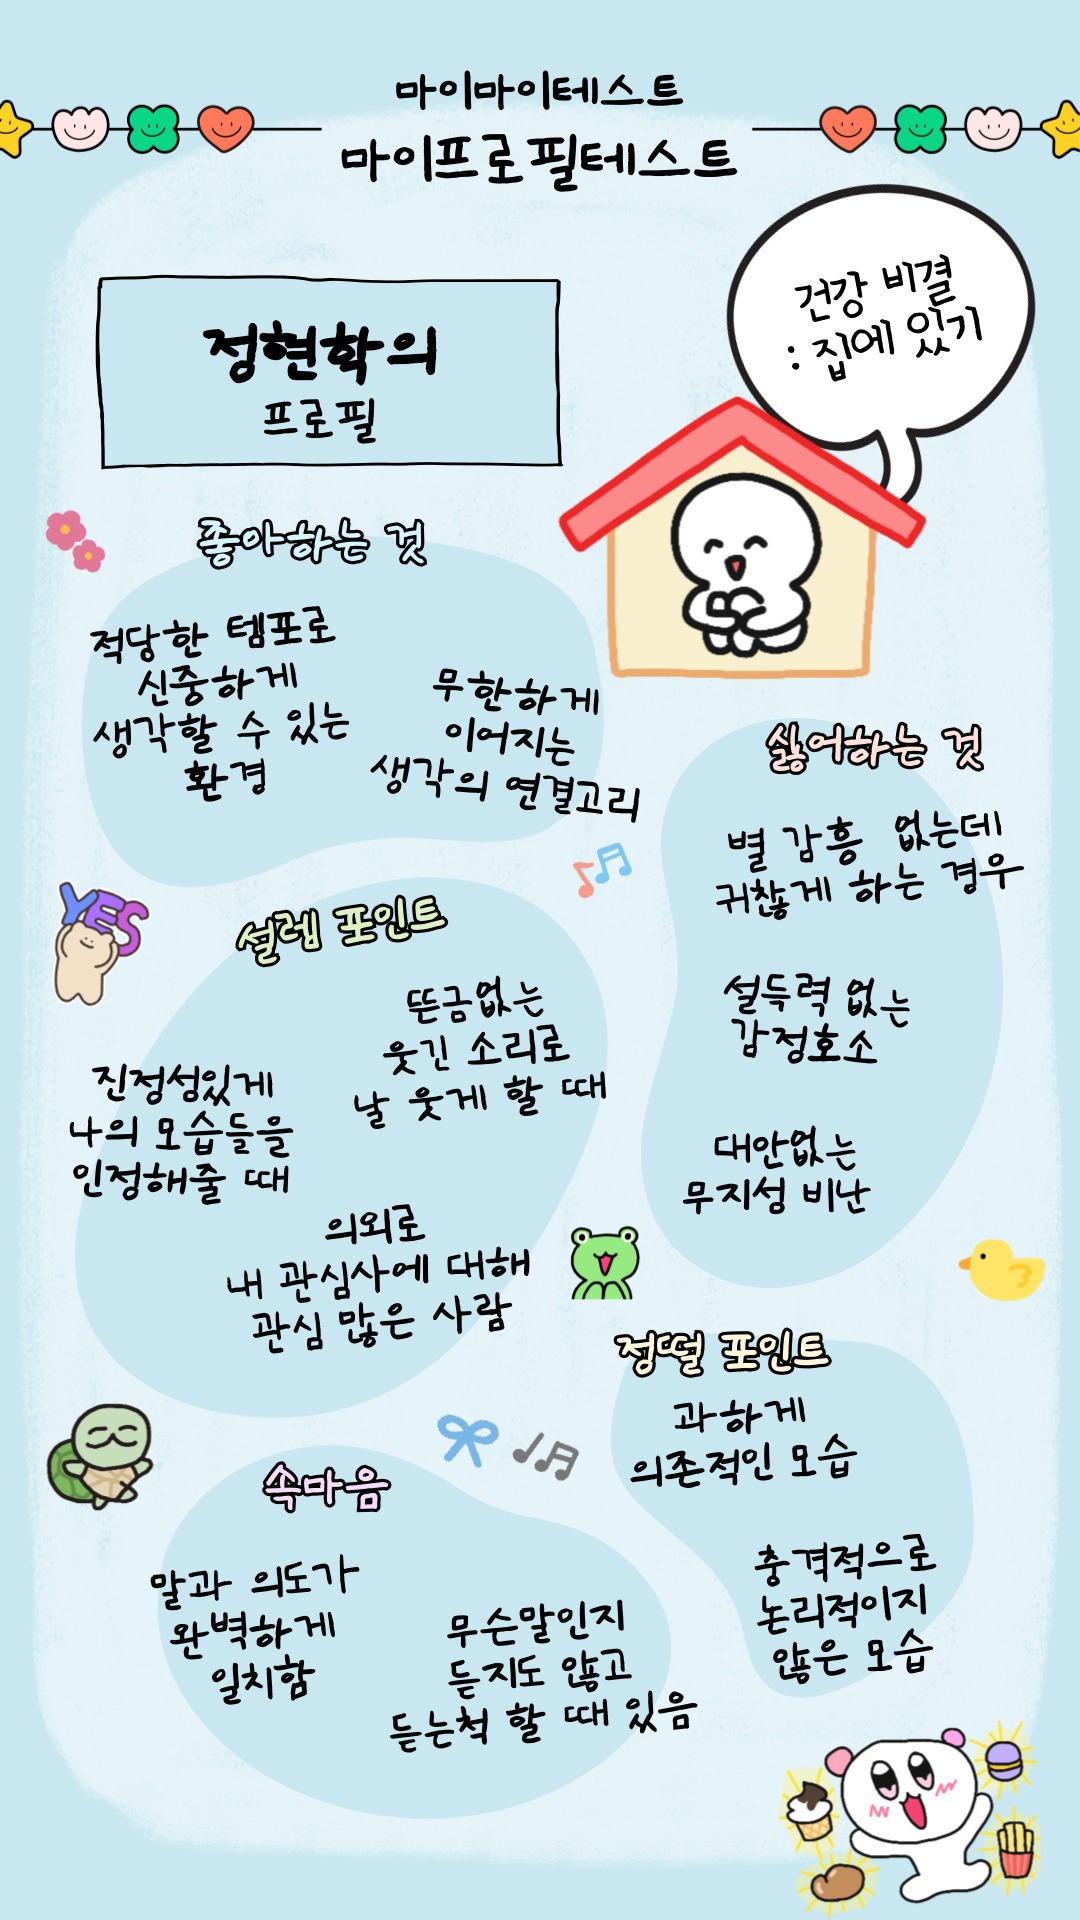 마이마이테스트
마이프로필테스트
건강 비결
: 집에 있기
정현학의
프로필
좋아하는 것
적당한 템포로
신중하게
생각할 수 있는
환경
무한하게
이어지는
생각의 연결고리
싫어하는 것
별 감흥 없는데
귀찮게 하는 경우
설득력 없는
감정호소
대안없는
무지성 비난
YES
설렘 포인트
뜬금없는
웃긴 소리로
날 웃게 할 때
진정성있게
나의 모습들을
인정해줄 때
의외로
내 관심사에 대해
관심 많은 사람
정떨 포인트
과하게
의존적인 모습
충격적으로
논리적이지
않은 모습
속마음
말과 의도가
완벽하게
일치함
무슨말인지
듣지도 않고
듣는척 할 때 있음